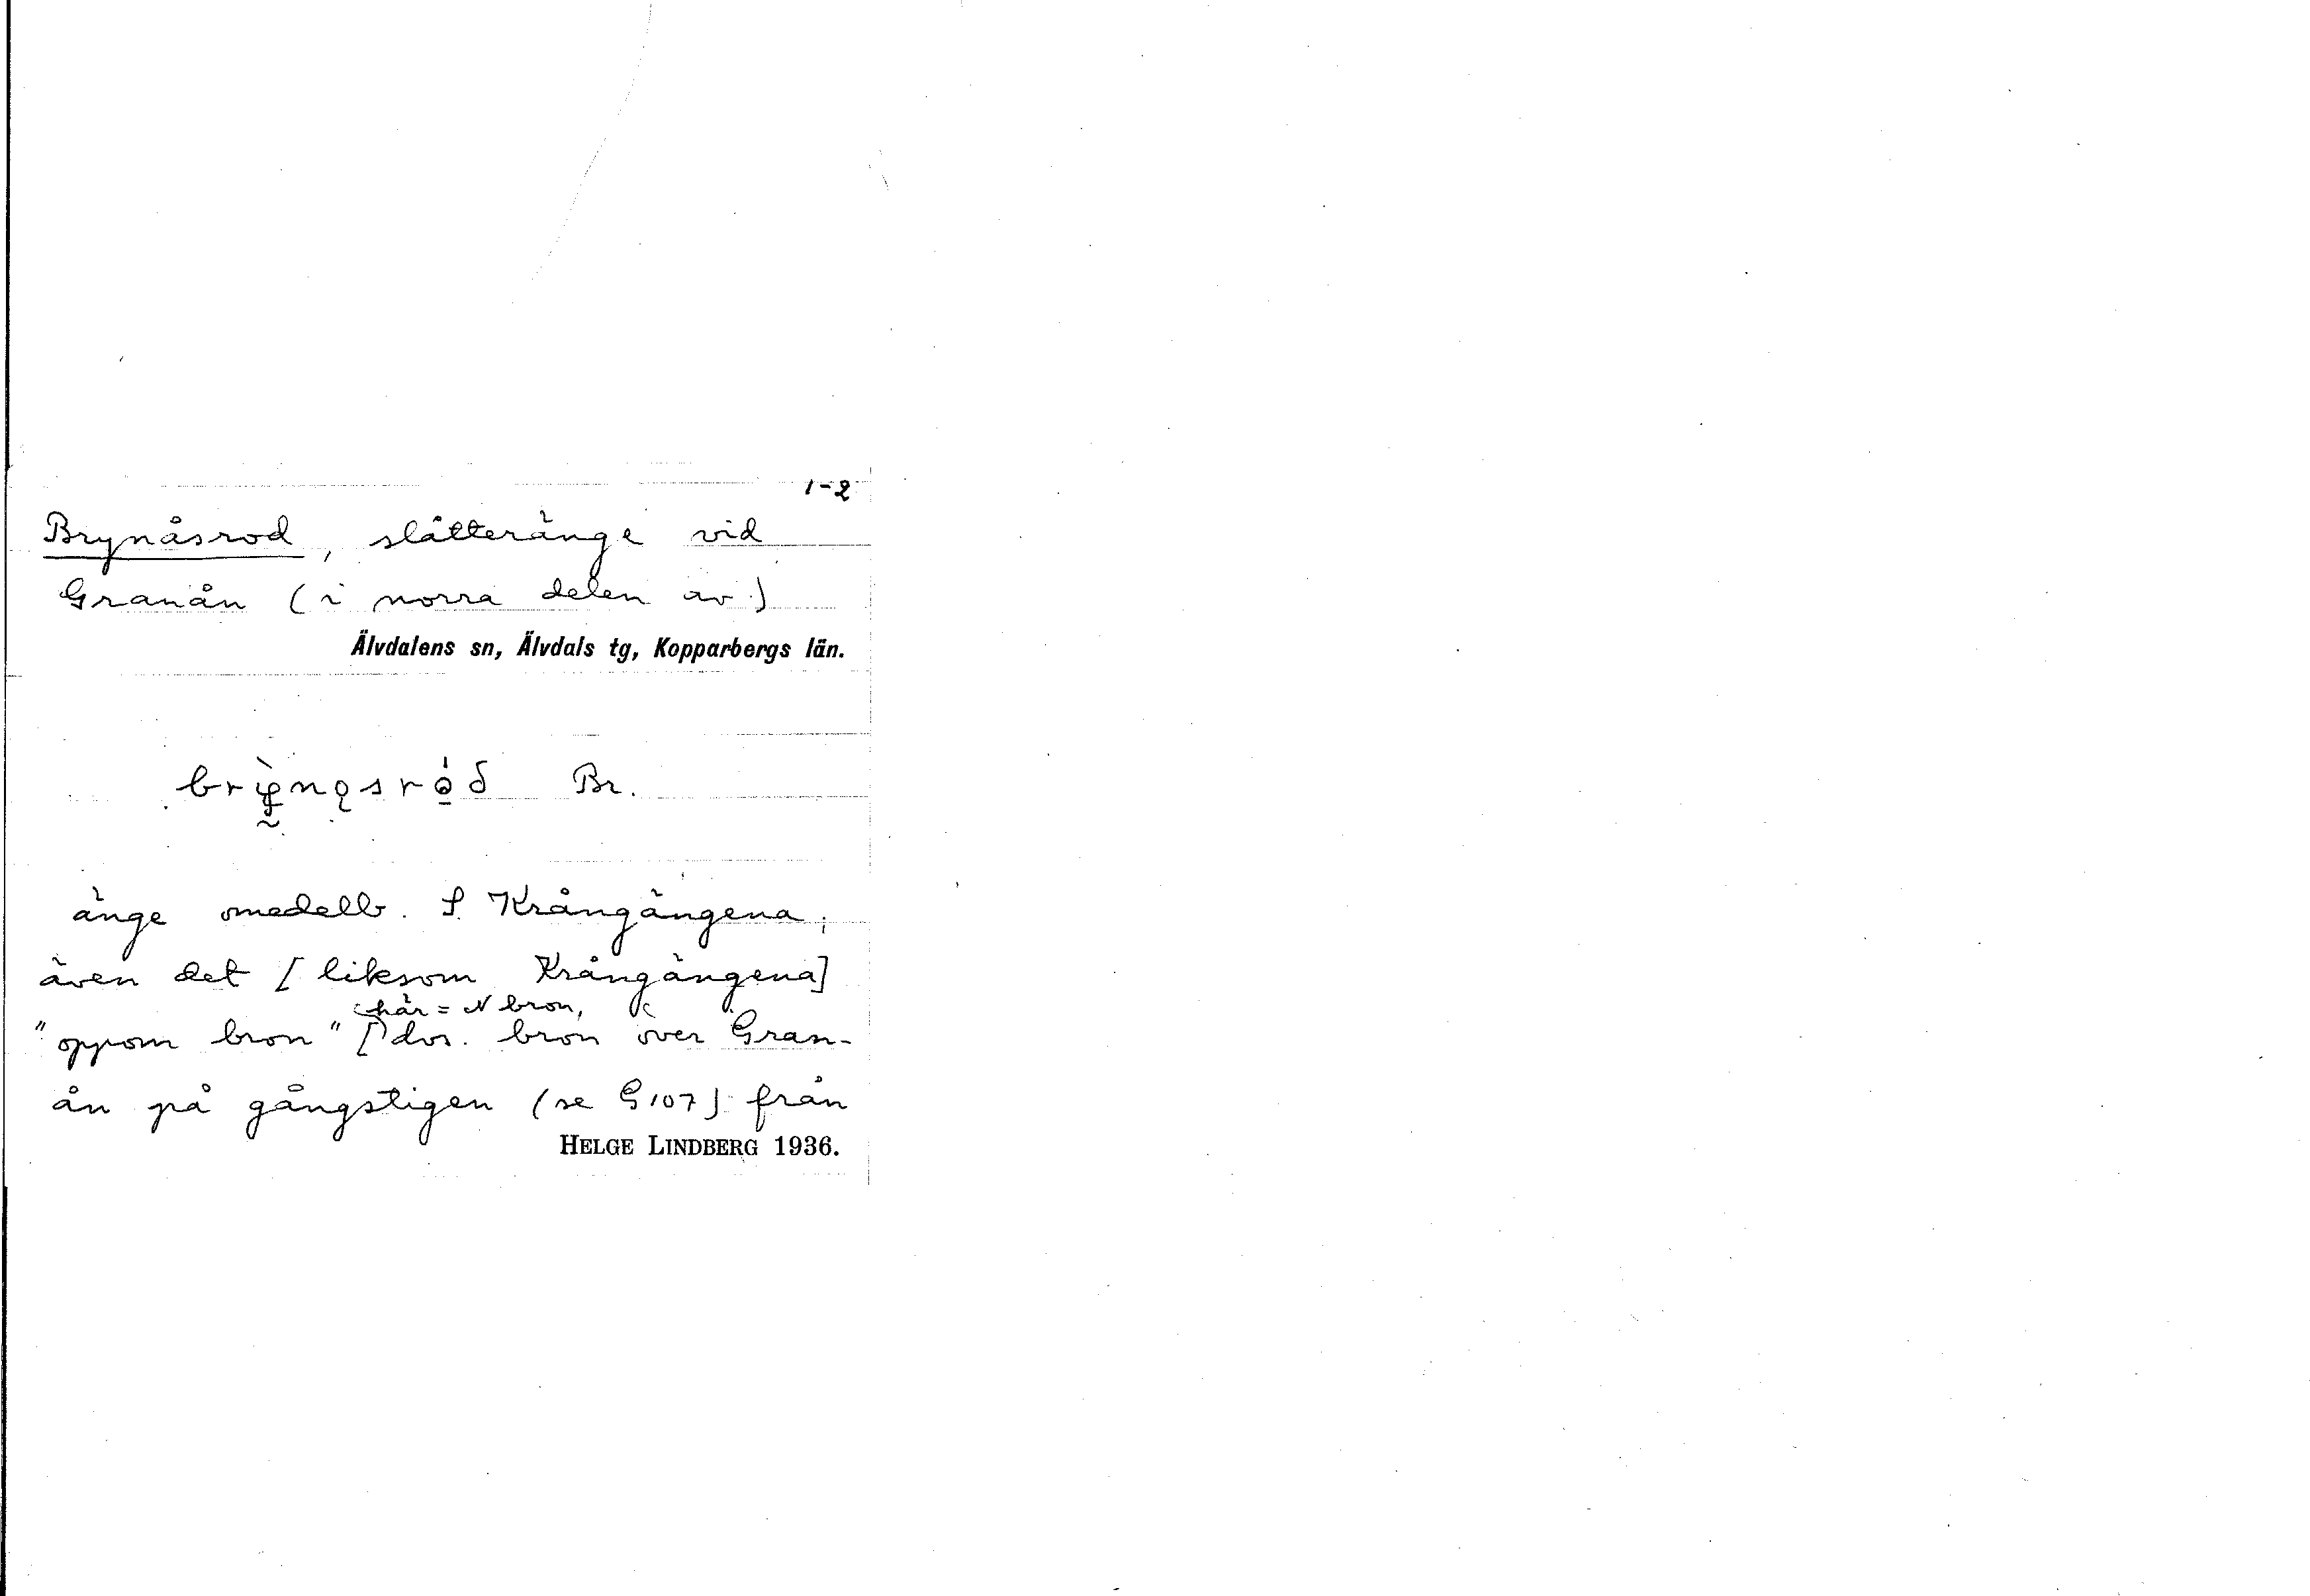 1-2
Brynåsrod, slåtteränge vid
Granån (i norra delen av)
Älvdalens sn, Älvdals tg, Kopparbergs län.
Br.
änge omedelb. S. Krångängena;
även det [liksom Krångängena]
här = N bron,
"oppom bron" [dvs. bron över Gran-
ån på gångstigen (se G107) från
HELGE LINDBERG 1936.